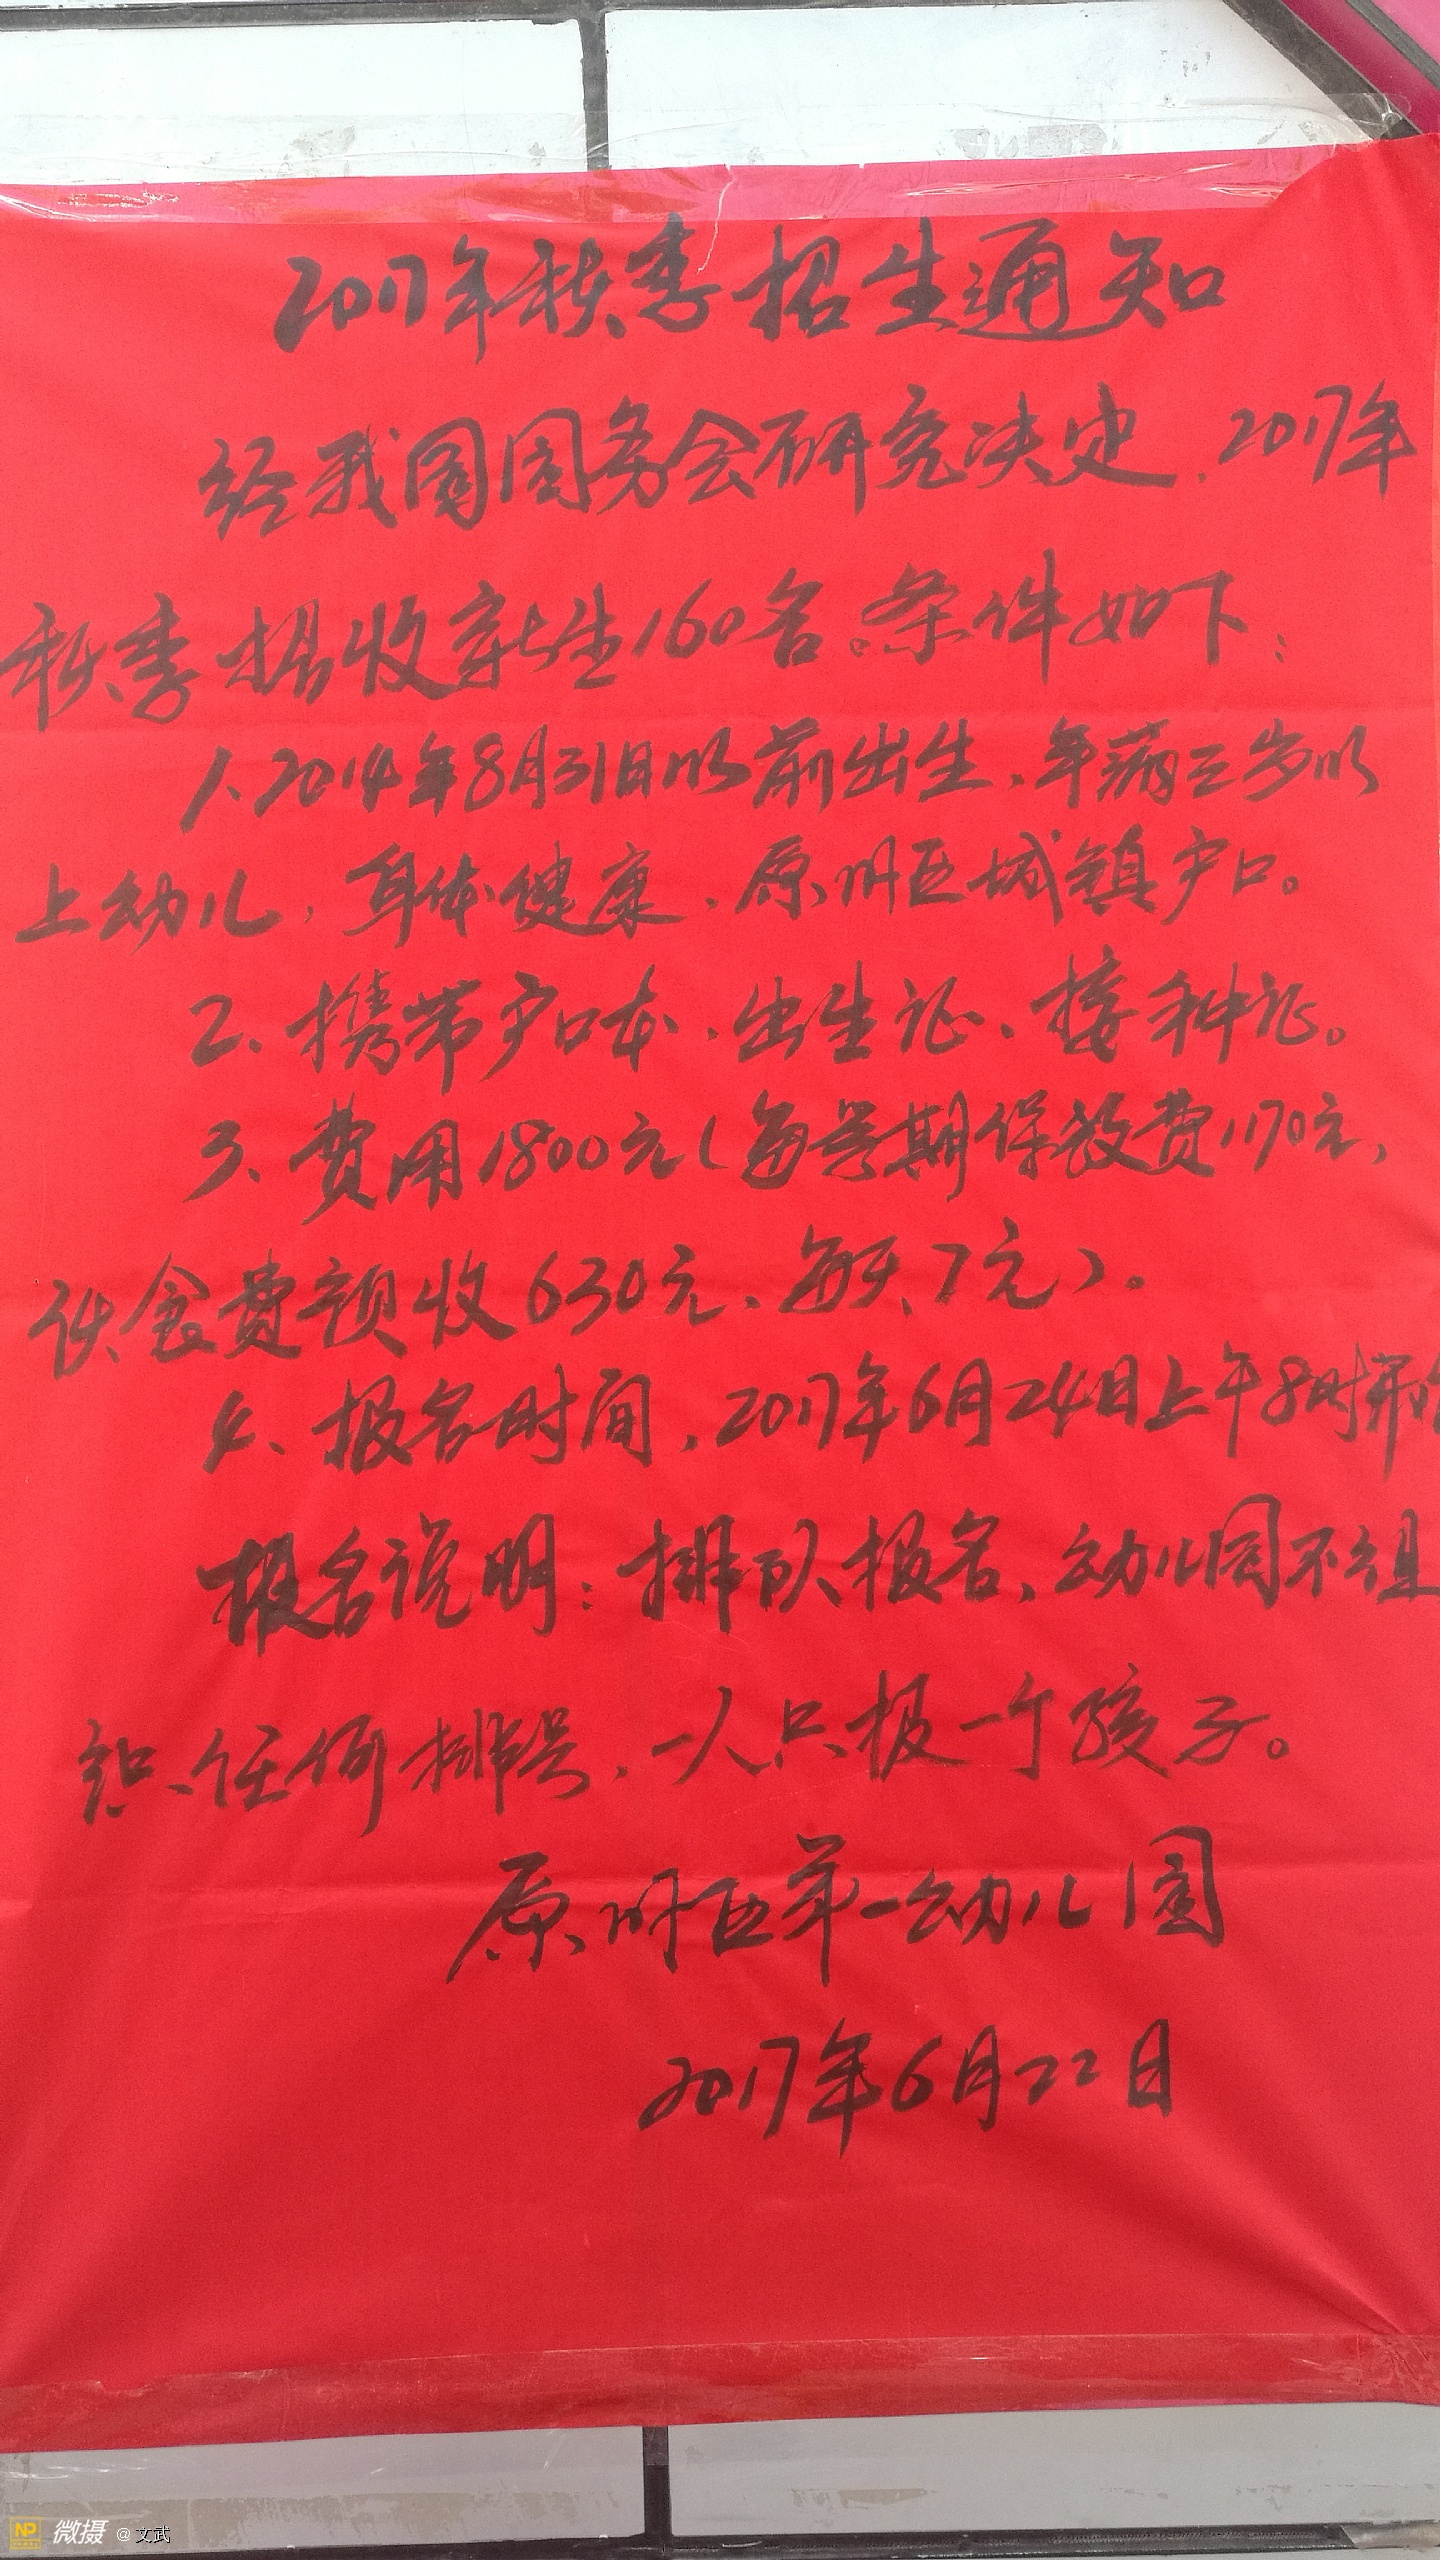 2017年秋季招生通知
经我园园务会研究决定，2017年
秋季招收新生160名。条件如下：
1、2014年8月31日以前出生、年满三岁以
上幼儿，身体健康、原州区城镇户口。
2、携带户口本、出生证、接种证。
3、费用1800元（每学期保教费1170元、
伙食费预收630元、每天7元）。
4、报名时间，2017年6月24日上午8时开始
报名说明：排队报名、幼儿园不组
织任何排号，一人只报一个孩子。
原州区第一幼儿园
2017年6月22日
NP 微摄 @ 文武